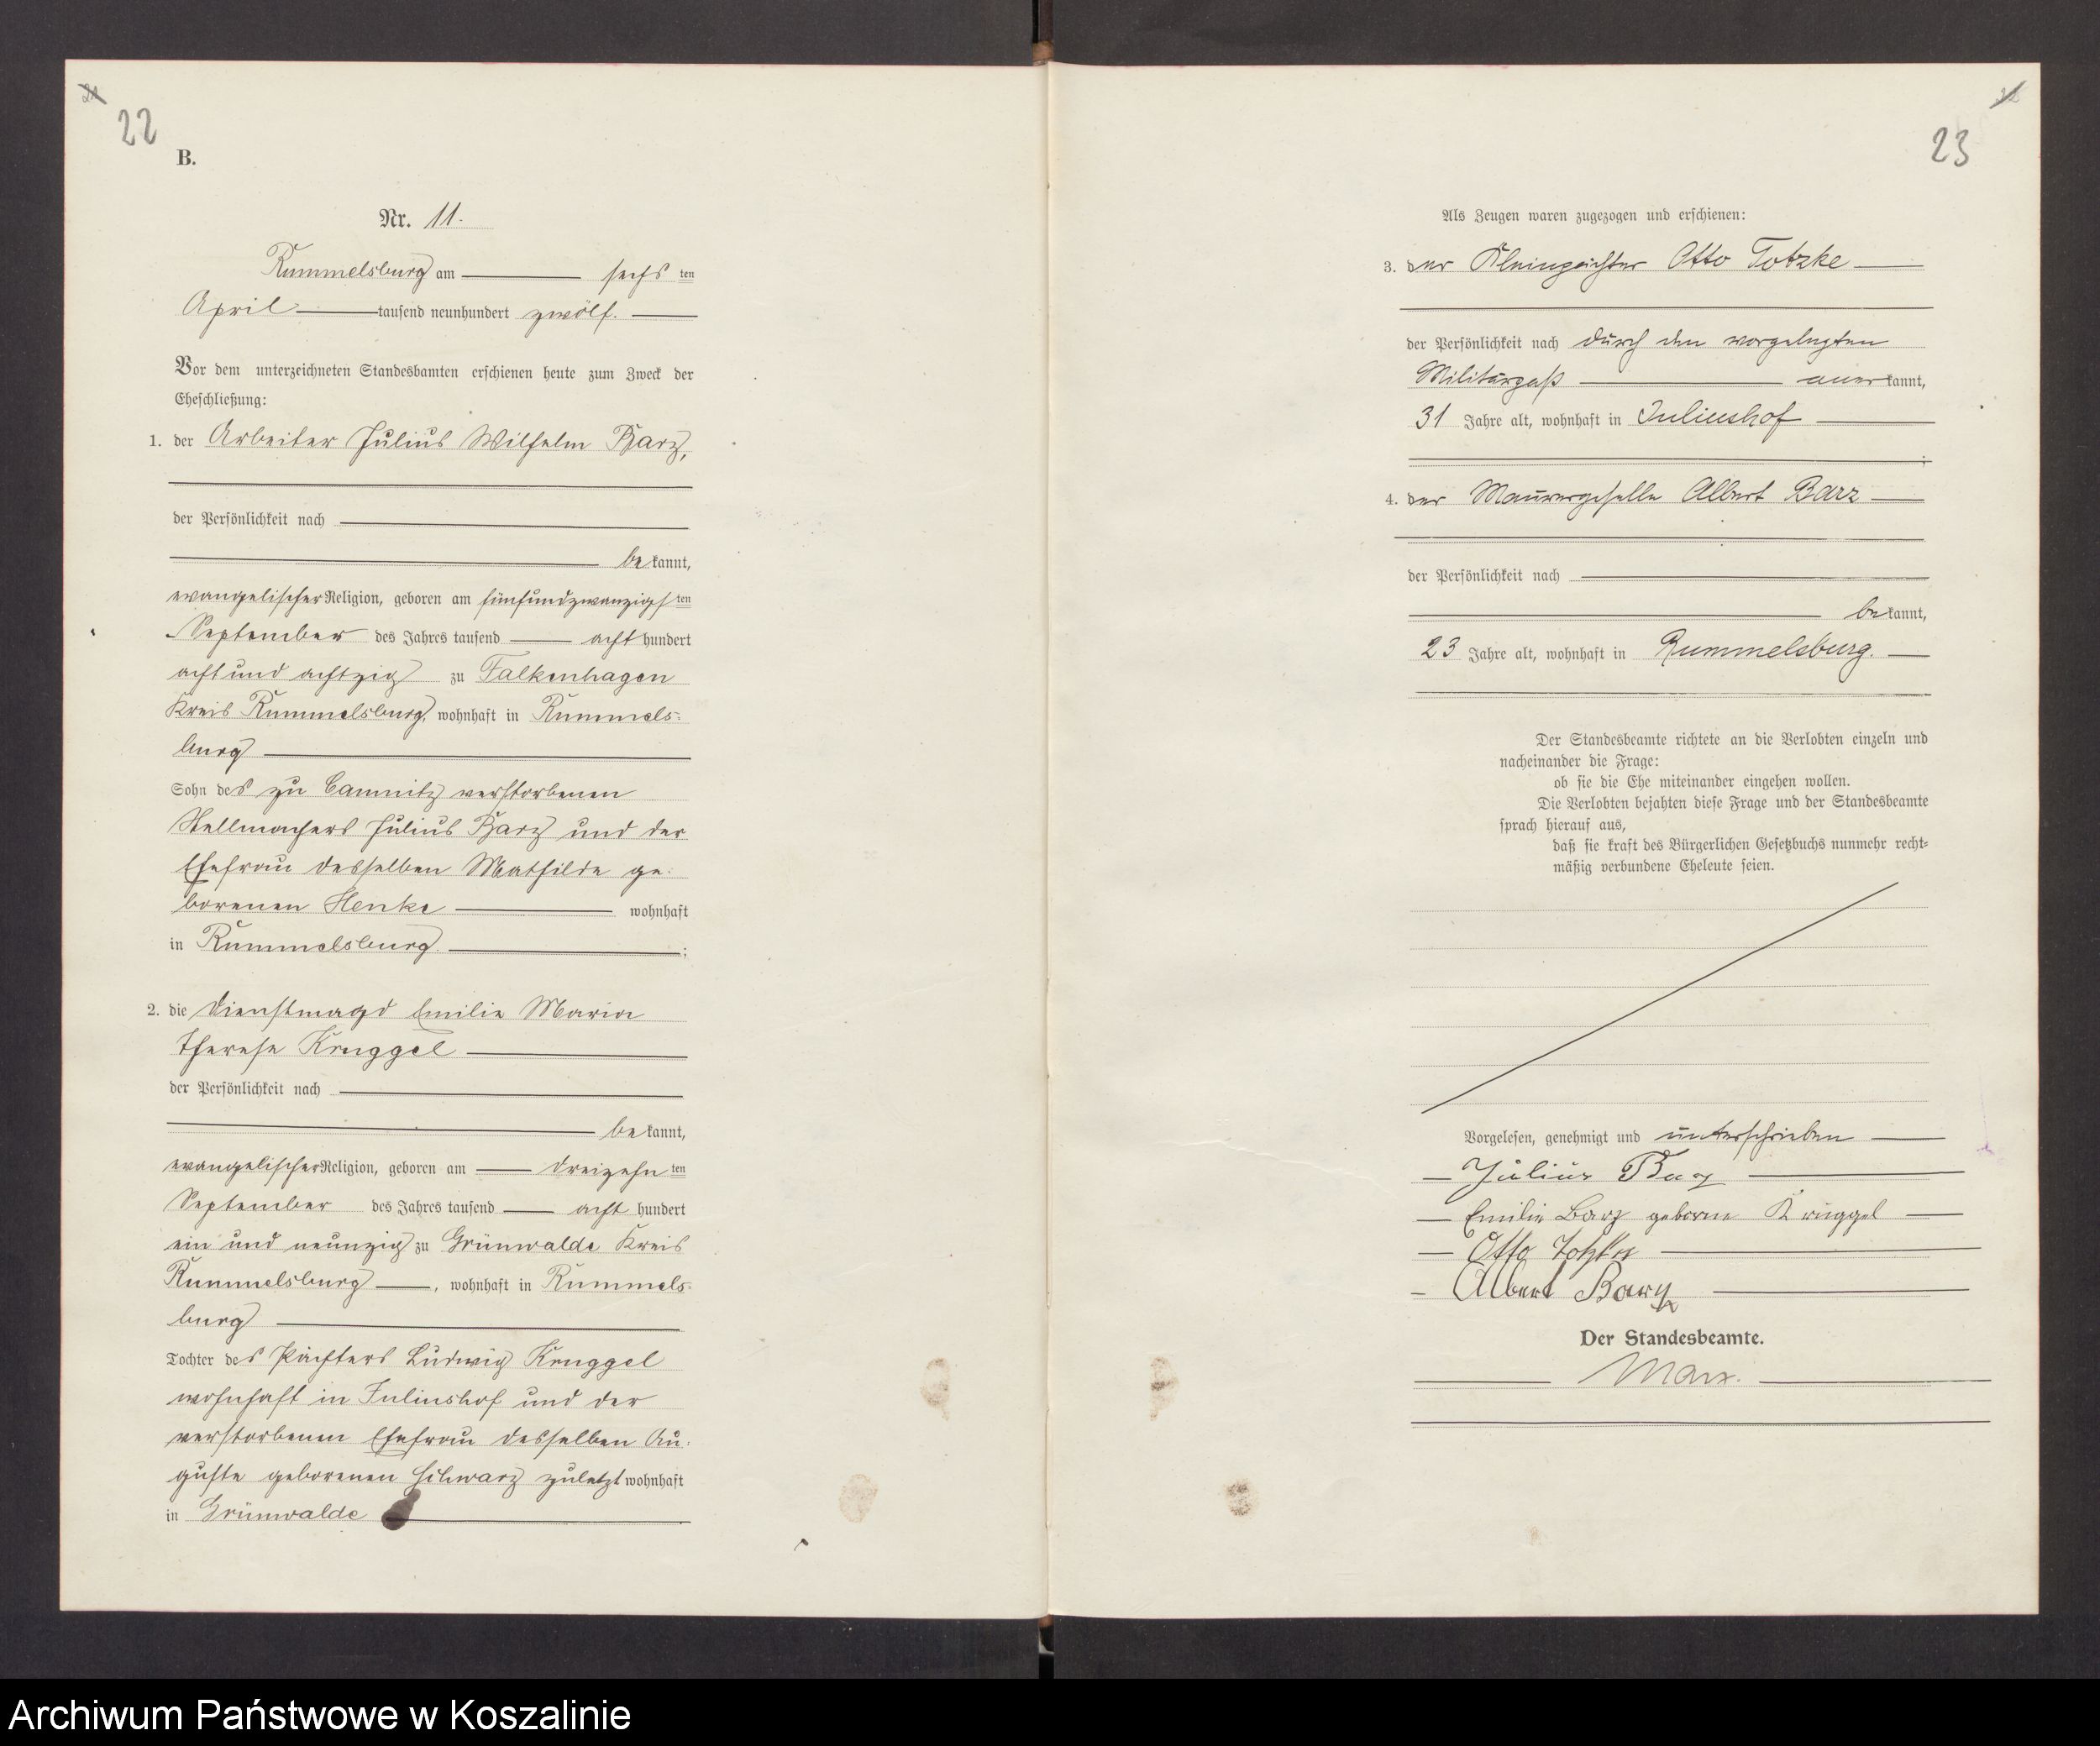 22
B.
Nr. 11.
Rummelsburg am sechs ten
April tausend neunhundert zwölf.
Vor dem unterzeichneten Standesbamten erschienen heute zum Zweck der
Eheschließung:
1. der Arbeiter Julius Wilhelm Barz,
der Persönlichkeit nach
be kannt,
evangelischer Religion, geboren am fünfundzwanzigs ten
September des Jahres tausend acht hundert
acht und achtzig zu Falkenhagen
Kreis Rummelsburg, wohnhaft in Rummels-
burg
Sohn des zu Camnitz verstorbenen
Stellmachers Julius Barz und der
Ehefrau desselben Mathilde ge-
borenen Henke wohnhaft
in Rummelsburg. ;
2. die Dienstmagd Emilie Marie
Therese Kruggel
der Persönlichkeit nach
be kannt,
evangelischer Religion, geboren am dreizehn ten
September des Jahres tausend acht hundert
ein und neunzig zu Grünwalde Kreis
Rummelsburg , wohnhaft in Rummels-
burg
Tochter des Pächters Ludwig Kruggel
wohnhaft in Juliushof und der
verstorbenen Ehefrau desselben Au-
guste geborenen Schwarz zuletzt wohnhaft
in Grünwalde
23
Als Zeugen waren zugezogen und erschienen:
3. der Kleinpächter Otto Totzke
der Persönlichkeit nach durch den vorgelegten
Militärpaß aner kannt,
31 Jahre alt, wohnhaft in Juliushof
;
4. der Maurergeselle Albert Barz
der Persönlichkeit nach
be kannt,
23 Jahre alt, wohnhaft in Rummelsburg.
Der Standesbeamte richtete an die Verlobten einzeln und
nacheinander die Frage:
ob sie die Ehe miteinander eingehen wollen.
Die Verlobten bejahten diese Frage und der Standesbeamte
sprach hierauf aus,
daß sie kraft des Bürgerlichen Gesetzbuchs nunmehr recht-
mäßig verbundene Eheleute seien.
Vorgelesen, genehmigt und unterschrieben
Julius Barz
Emilie Barz geborne Kruggel
Otto Totzke
Albert Barz
Der Standesbeamte.
Marx.
Archiwum Państwowe w Koszalinie